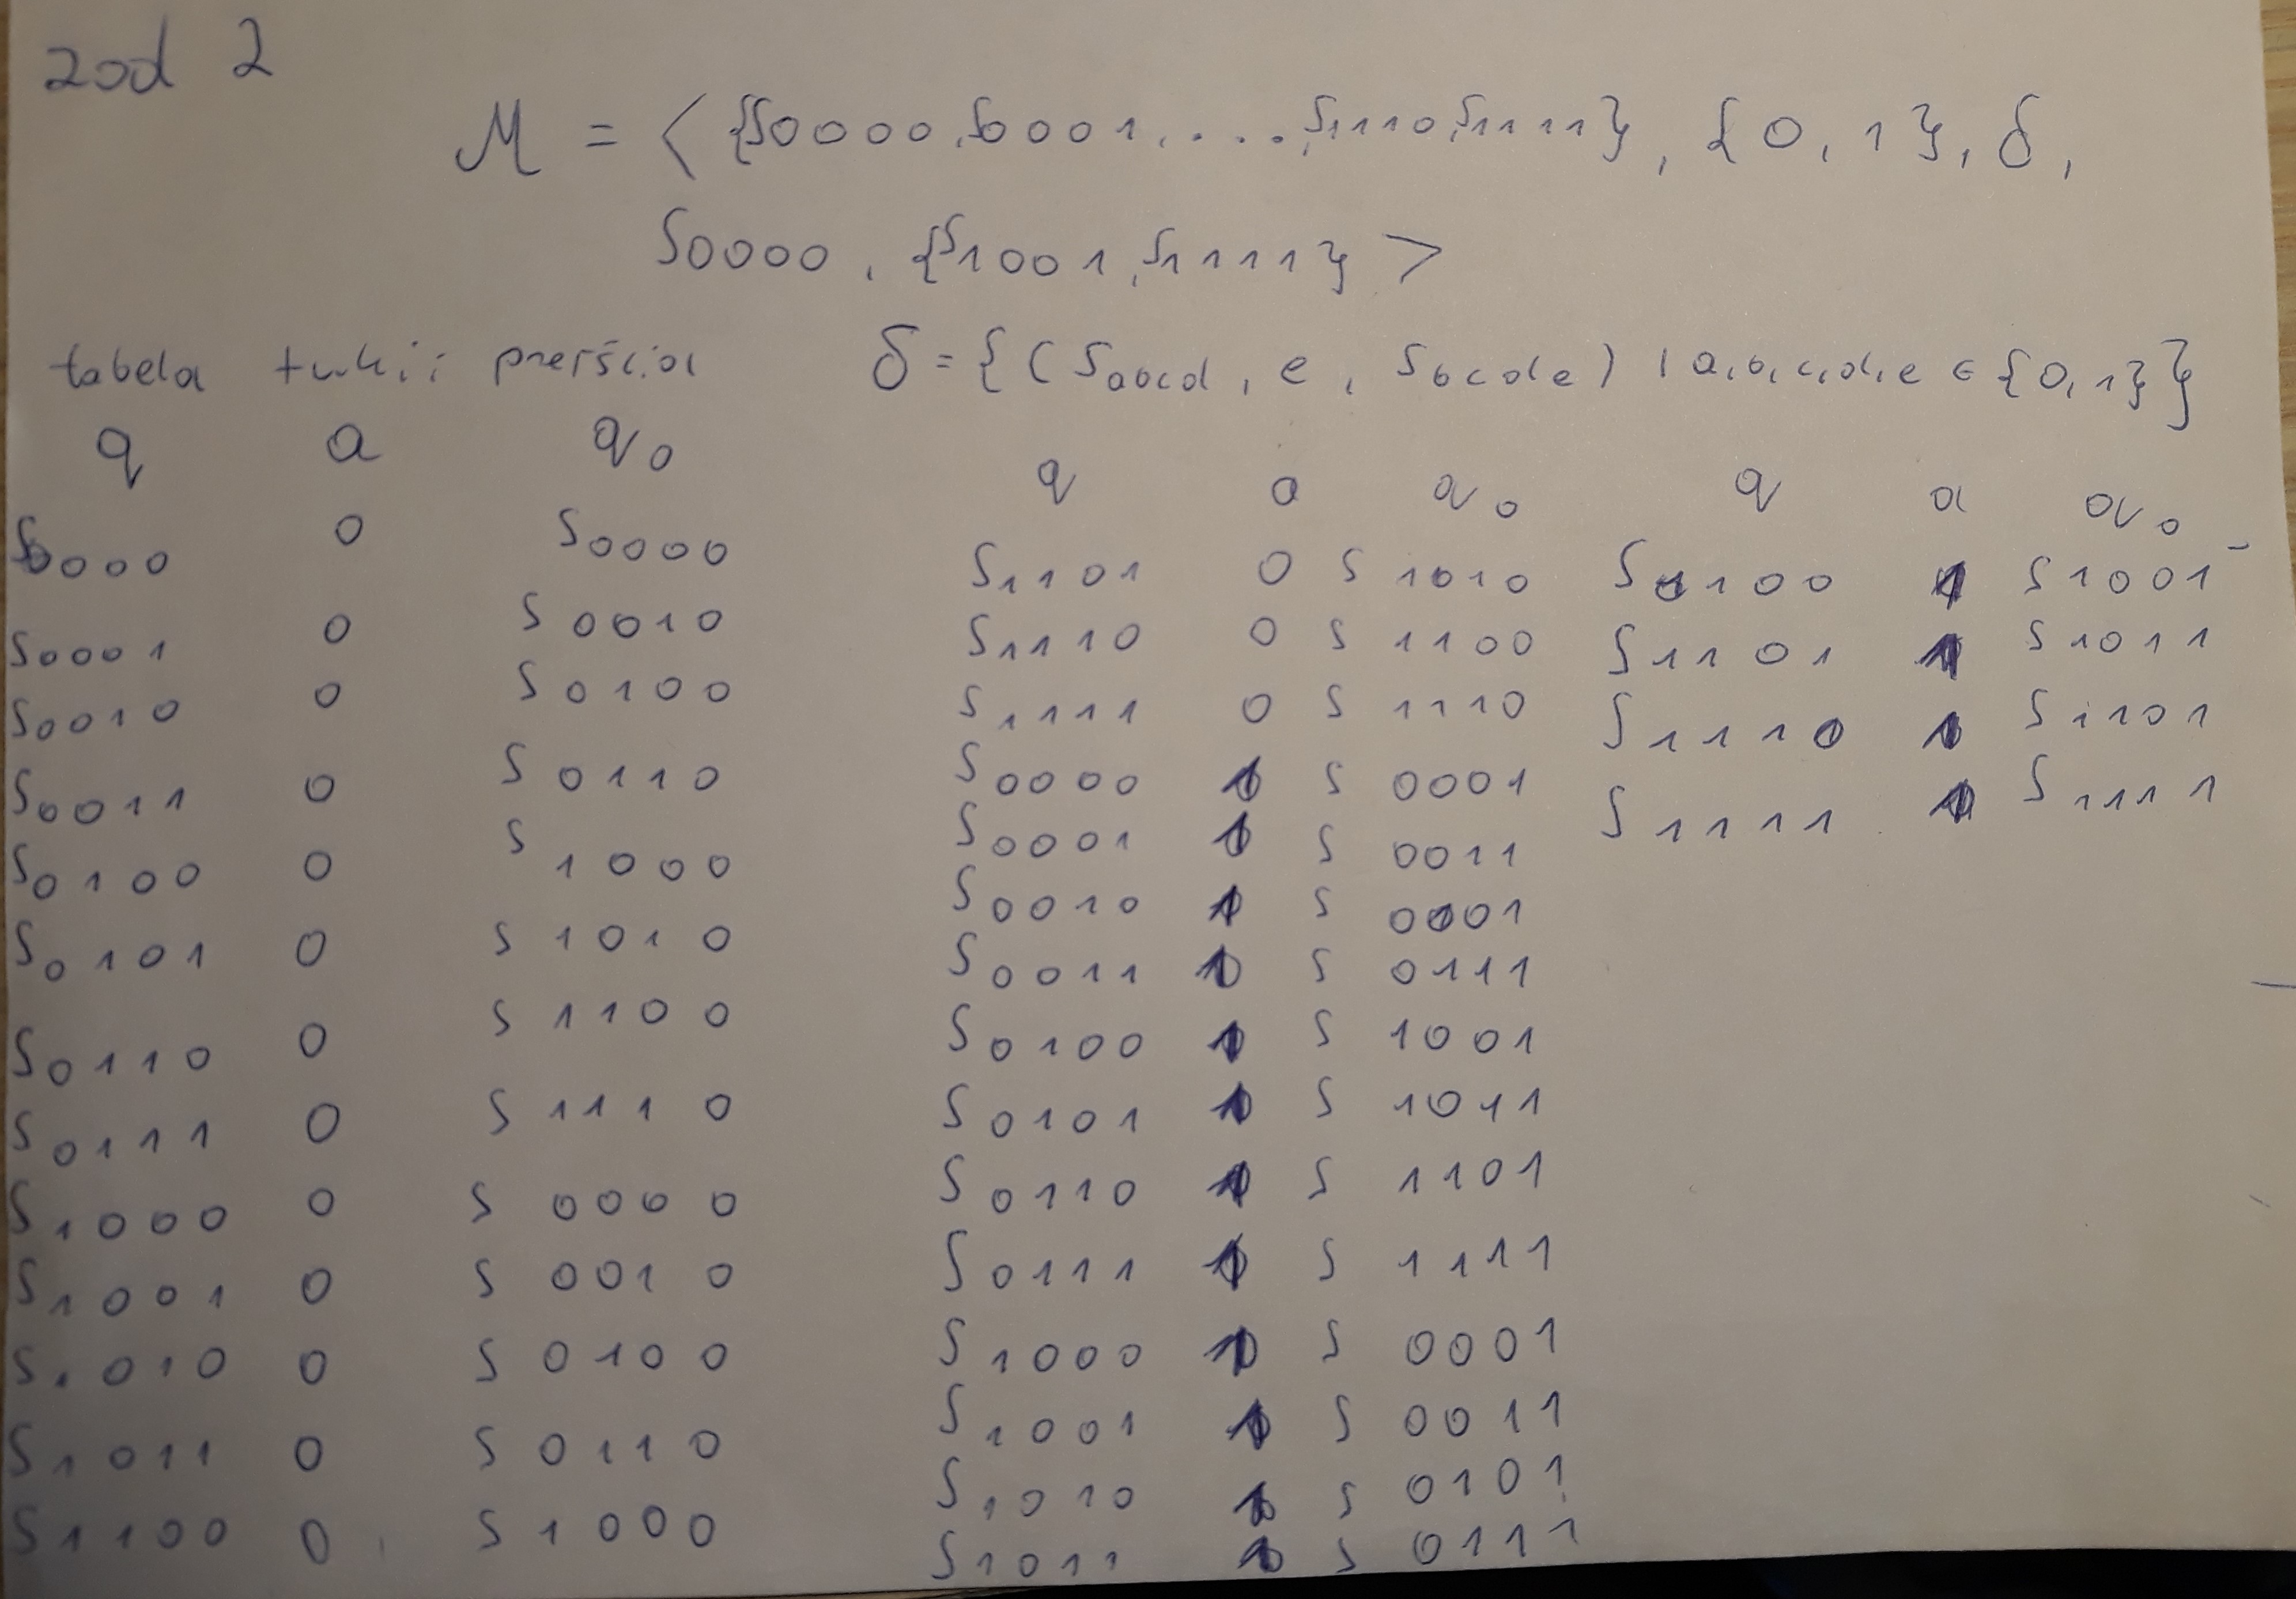 zad 2
M = < {S0000, S0001, ...., S1110, S1111}, {0, 1}, δ,
S0000, {S1001, S1111} >
tabela przejścia δ = {(Sabcd, e, Sbcde) | a,b,c,d,e ∈ {0,1}}
q a q0
S0000 0 S0000
S0001 0 S0010
S0010 0 S0100
S0011 0 S0110
S0100 0 S1000
S0101 0 S1010
S0110 0 S1100
S0111 0 S1110
S1000 0 S0000
S1001 0 S0010
S1010 0 S0100
S1011 0 S0110
S1100 0 S1000
q a q0
S1101 0 S1010
S1110 0 S1100
S1111 0 S1110
S0000 1 S0001
S0001 1 S0011
S0010 1 S0001
S0011 1 S0111
S0100 1 S1001
S0101 1 S1011
S0110 1 S1101
S0111 1 S1111
S1000 1 S0001
S1001 1 S0011
S1010 1 S0101
S1011 1 S0111
q a q0
S1100 1 S1001
S1101 1 S1011
S1110 1 S1101
S1111 1 S1111